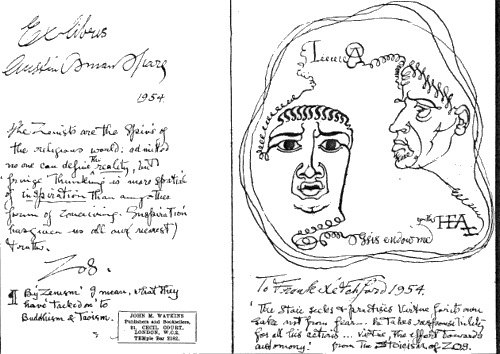 Ex libris
Austin Osman Spare
1954
The Zenists are the Spivs of
the religious world: admitted
no one can define the reality, but
fringe thinking is more spatial
of inspiration than any other
form of conceiving. Inspiration
has given us all our nearest
truths.
Zos.
¶ By 'Zenism' I mean, what they
have tacked on to
Buddhism & Taoism.
JOHN M. WATKINS
Publishers and Booksellers,
21, CECIL COURT,
LONDON, W.C.2.
TEMple Bar 2182.
endow me
To Frank Letchford 1954.
'The Stoic seeks & practises Virtue for its own
sake not from fear... he Takes responsibility
for all his actions... Virtue, the effort towards
autonomy.' from The Stoicism of ZOS.